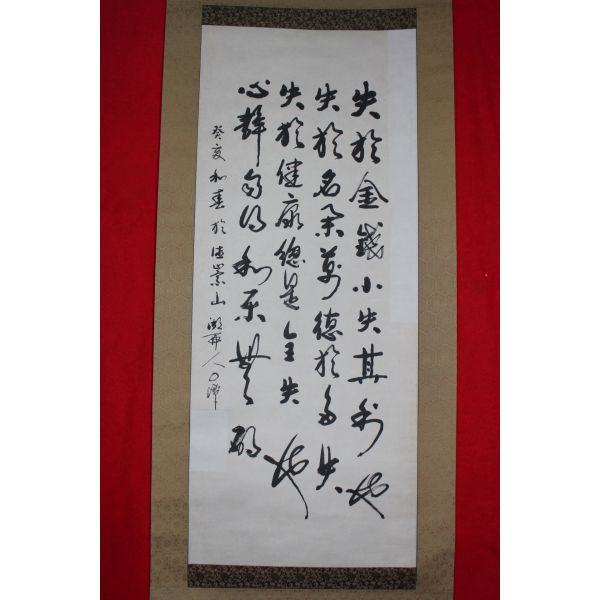 失於金錢小失其利也
失於名柔萬德於多失
失於健康總是全失也
心靜自得利樂無碍
癸亥和春於德崇山湖西人